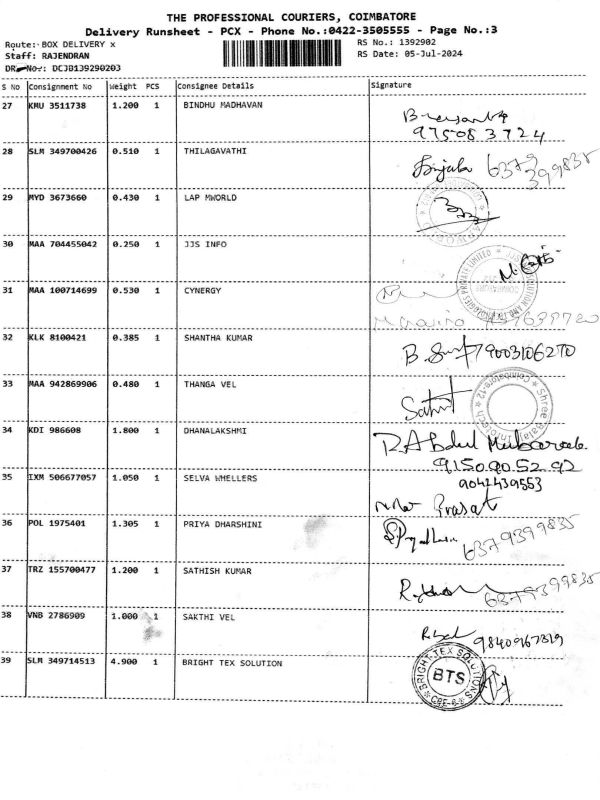 THE PROFESSIONAL COURIERS, COIMBATORE
Delivery Runsheet - PCX - Phone No.:0422-3505555 - Page No.:3
Route: BOX DELIVERY x
RS No.: 1392902
Staff: RAJENDRAN
RS Date: 05-Jul-2024
DR No.: DCJB139290203
S No Consignment No Weight PCS Consignee Details Signature
27 KMU 3511738 1.200 1 BINDHU MADHAVAN
975083724
28 SLM 349700426 0.510 1 THILAGAVATHI
6379399835
29 MYD 3673660 0.430 1 LAP MWORLD
30 MAA 704455042 0.250 1 JJS INFO
31 MAA 100714699 0.530 1 CYNERGY
32 KLK 8100421 0.385 1 SHANTHA KUMAR
79003106270
33 MAA 942869906 0.480 1 THANGA VEL
34 KDI 986608 1.800 1 DHANALAKSHMI
R.A Abdul
9150905292
35 IXM 506677057 1.050 1 SELVA WHELLERS
9042439553
Prasat
36 POL 1975401 1.305 1 PRIYA DHARSHINI
6379399835
37 TRZ 155700477 1.200 1 SATHISH KUMAR
6379399835
38 VNB 2786909 1.000 1 SAKTHI VEL
9840967319
39 SLM 349714513 4.900 1 BRIGHT TEX SOLUTION
BRIGHT TEX SOLUTIONS
BTS
CBE-6